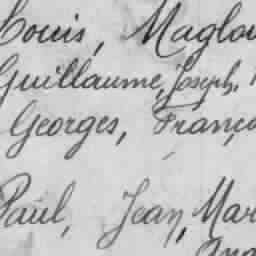 Louis, Maglo
Guillaume, Joseph,
Georges, Franço
Paul, Jean, Mar